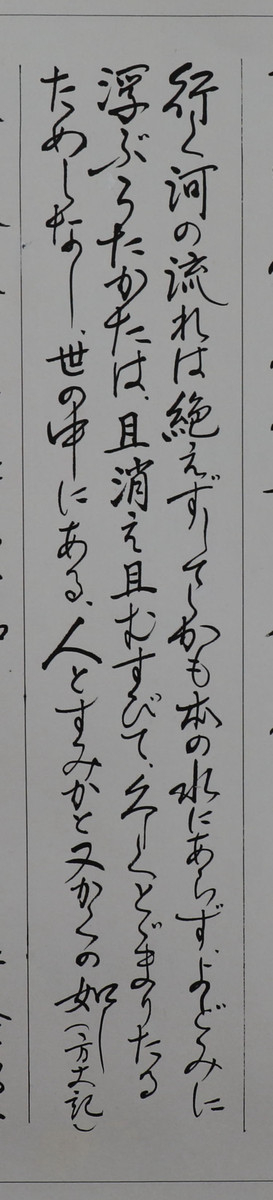 行く河の流れは絶えずしてしかも本の水にあらず、よどみに
浮ぶうたかたは、且消え且むすびて、久しくとゞまりたる
ためしなし、世の中にある、人とすみかと又かくの如し(方丈記)